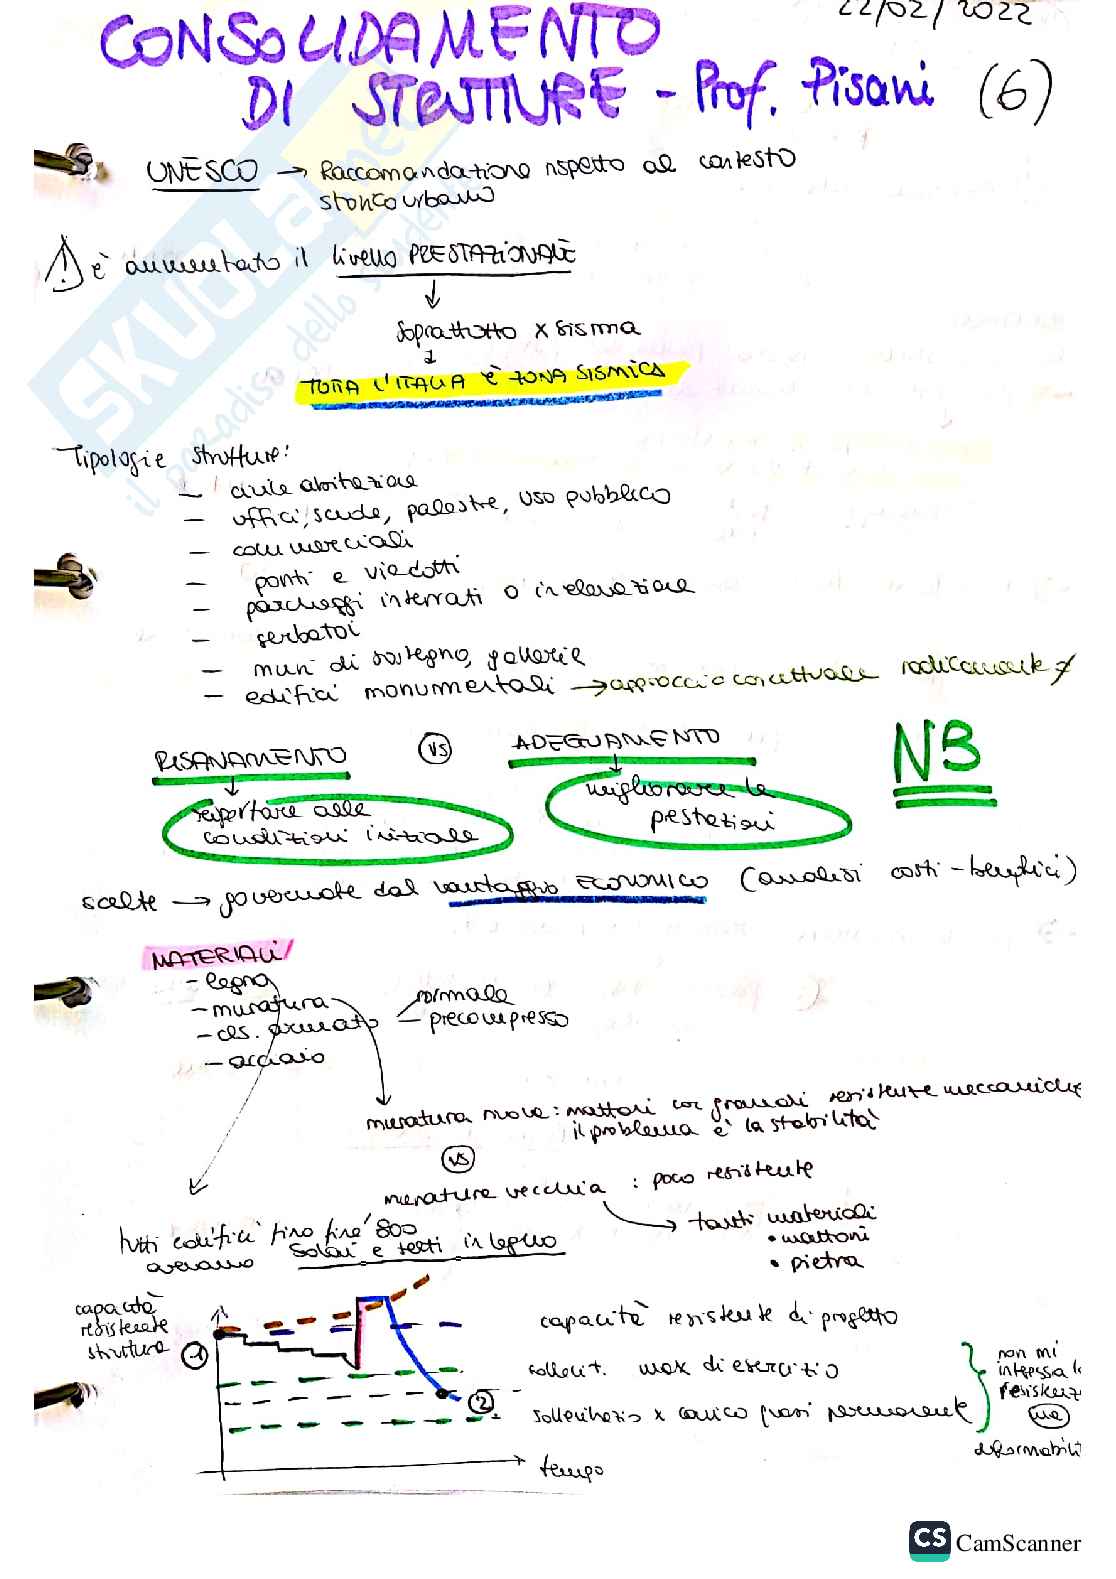 22/02/2022
CONSOLIDAMENTO
DI STRUTTURE - Prof. Pisani (6)
UNESCO → Raccomandazione rispetto al contesto
storico urbano
! è aumentato il livello PRESTAZIONALE
↓
soprattutto x sisma
↓
TUTTA L'ITALIA è ZONA SISMICA
Tipologie strutture:
- civile abitazione
- uffici, scuole, palestre, uso pubblico
- commerciali
- ponti e viadotti
- parcheggi interrati o in elevazione
- serbatoi
- muri di sostegno, gallerie
- edifici monumentali → approccio concettuale radicalmente ≠
RISANAMENTO vs ADEGUAMENTO NB
riportare alle
condizioni iniziale
migliorare le
prestazioni
scelte → governate dal vantaggio ECONOMICO (analisi costi-benefici)
MATERIALI
- legno
- muratura
- cls. armato - normale
- precompresso
- acciaio
muratura nuova: mattoni con grandi resistenze meccaniche
il problema è la stabilità
vs
muratura vecchia : poco resistente
→ tanti materiali
• mattoni
• pietra
tutti edifici fino fine '800
avevano solai e tetti in legno
capacità
resistente
struttura
1
2
tempo
capacità resistente di progetto
sollecit. max di esercizio
sollecitazio x carico quasi permanente
non mi
interessa la
resistenz
ma
deformabili
SKUOLA.net
il paradiso dello studente
CS CamScanner